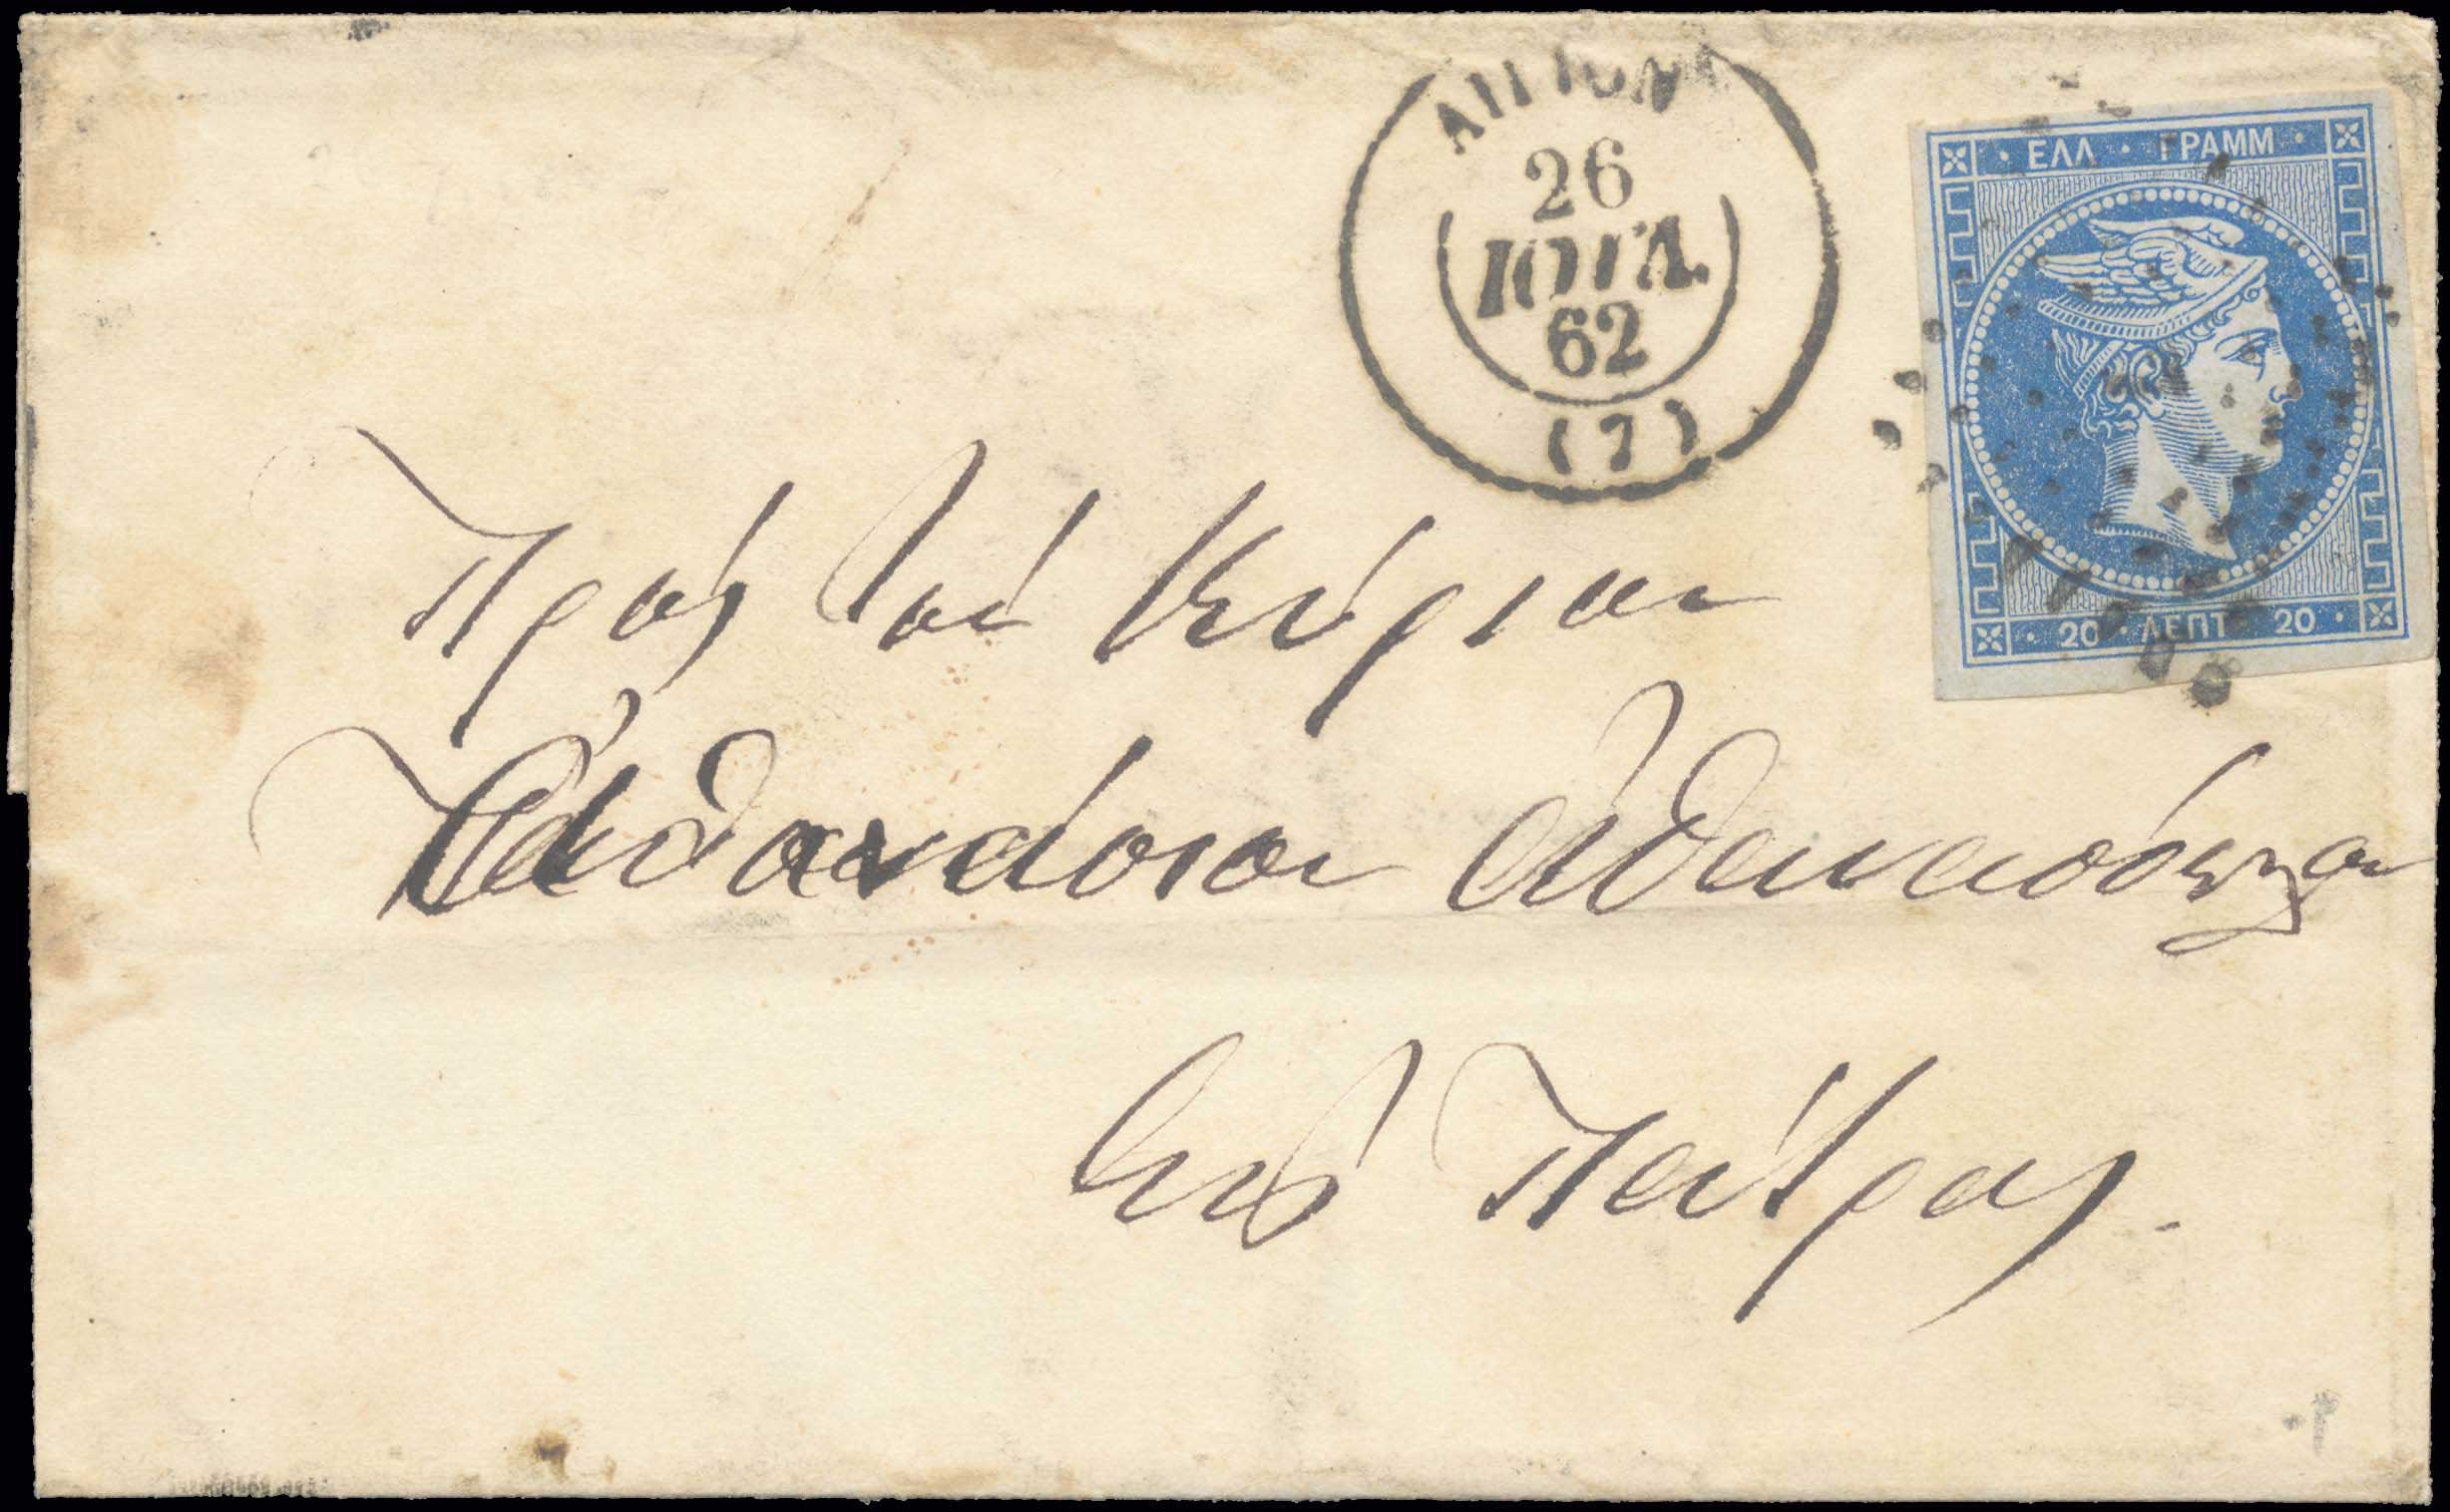 26
ΙΟΥΛ.
62
(7)
ΕΛΛ · ΓΡΑΜΜ
20 · ΛΕΠΤ · 20
Πρὸς τὸν Κύριον
Ἀθανάσιον Ἀθανασόπουλον
εἰς Πάτρας.